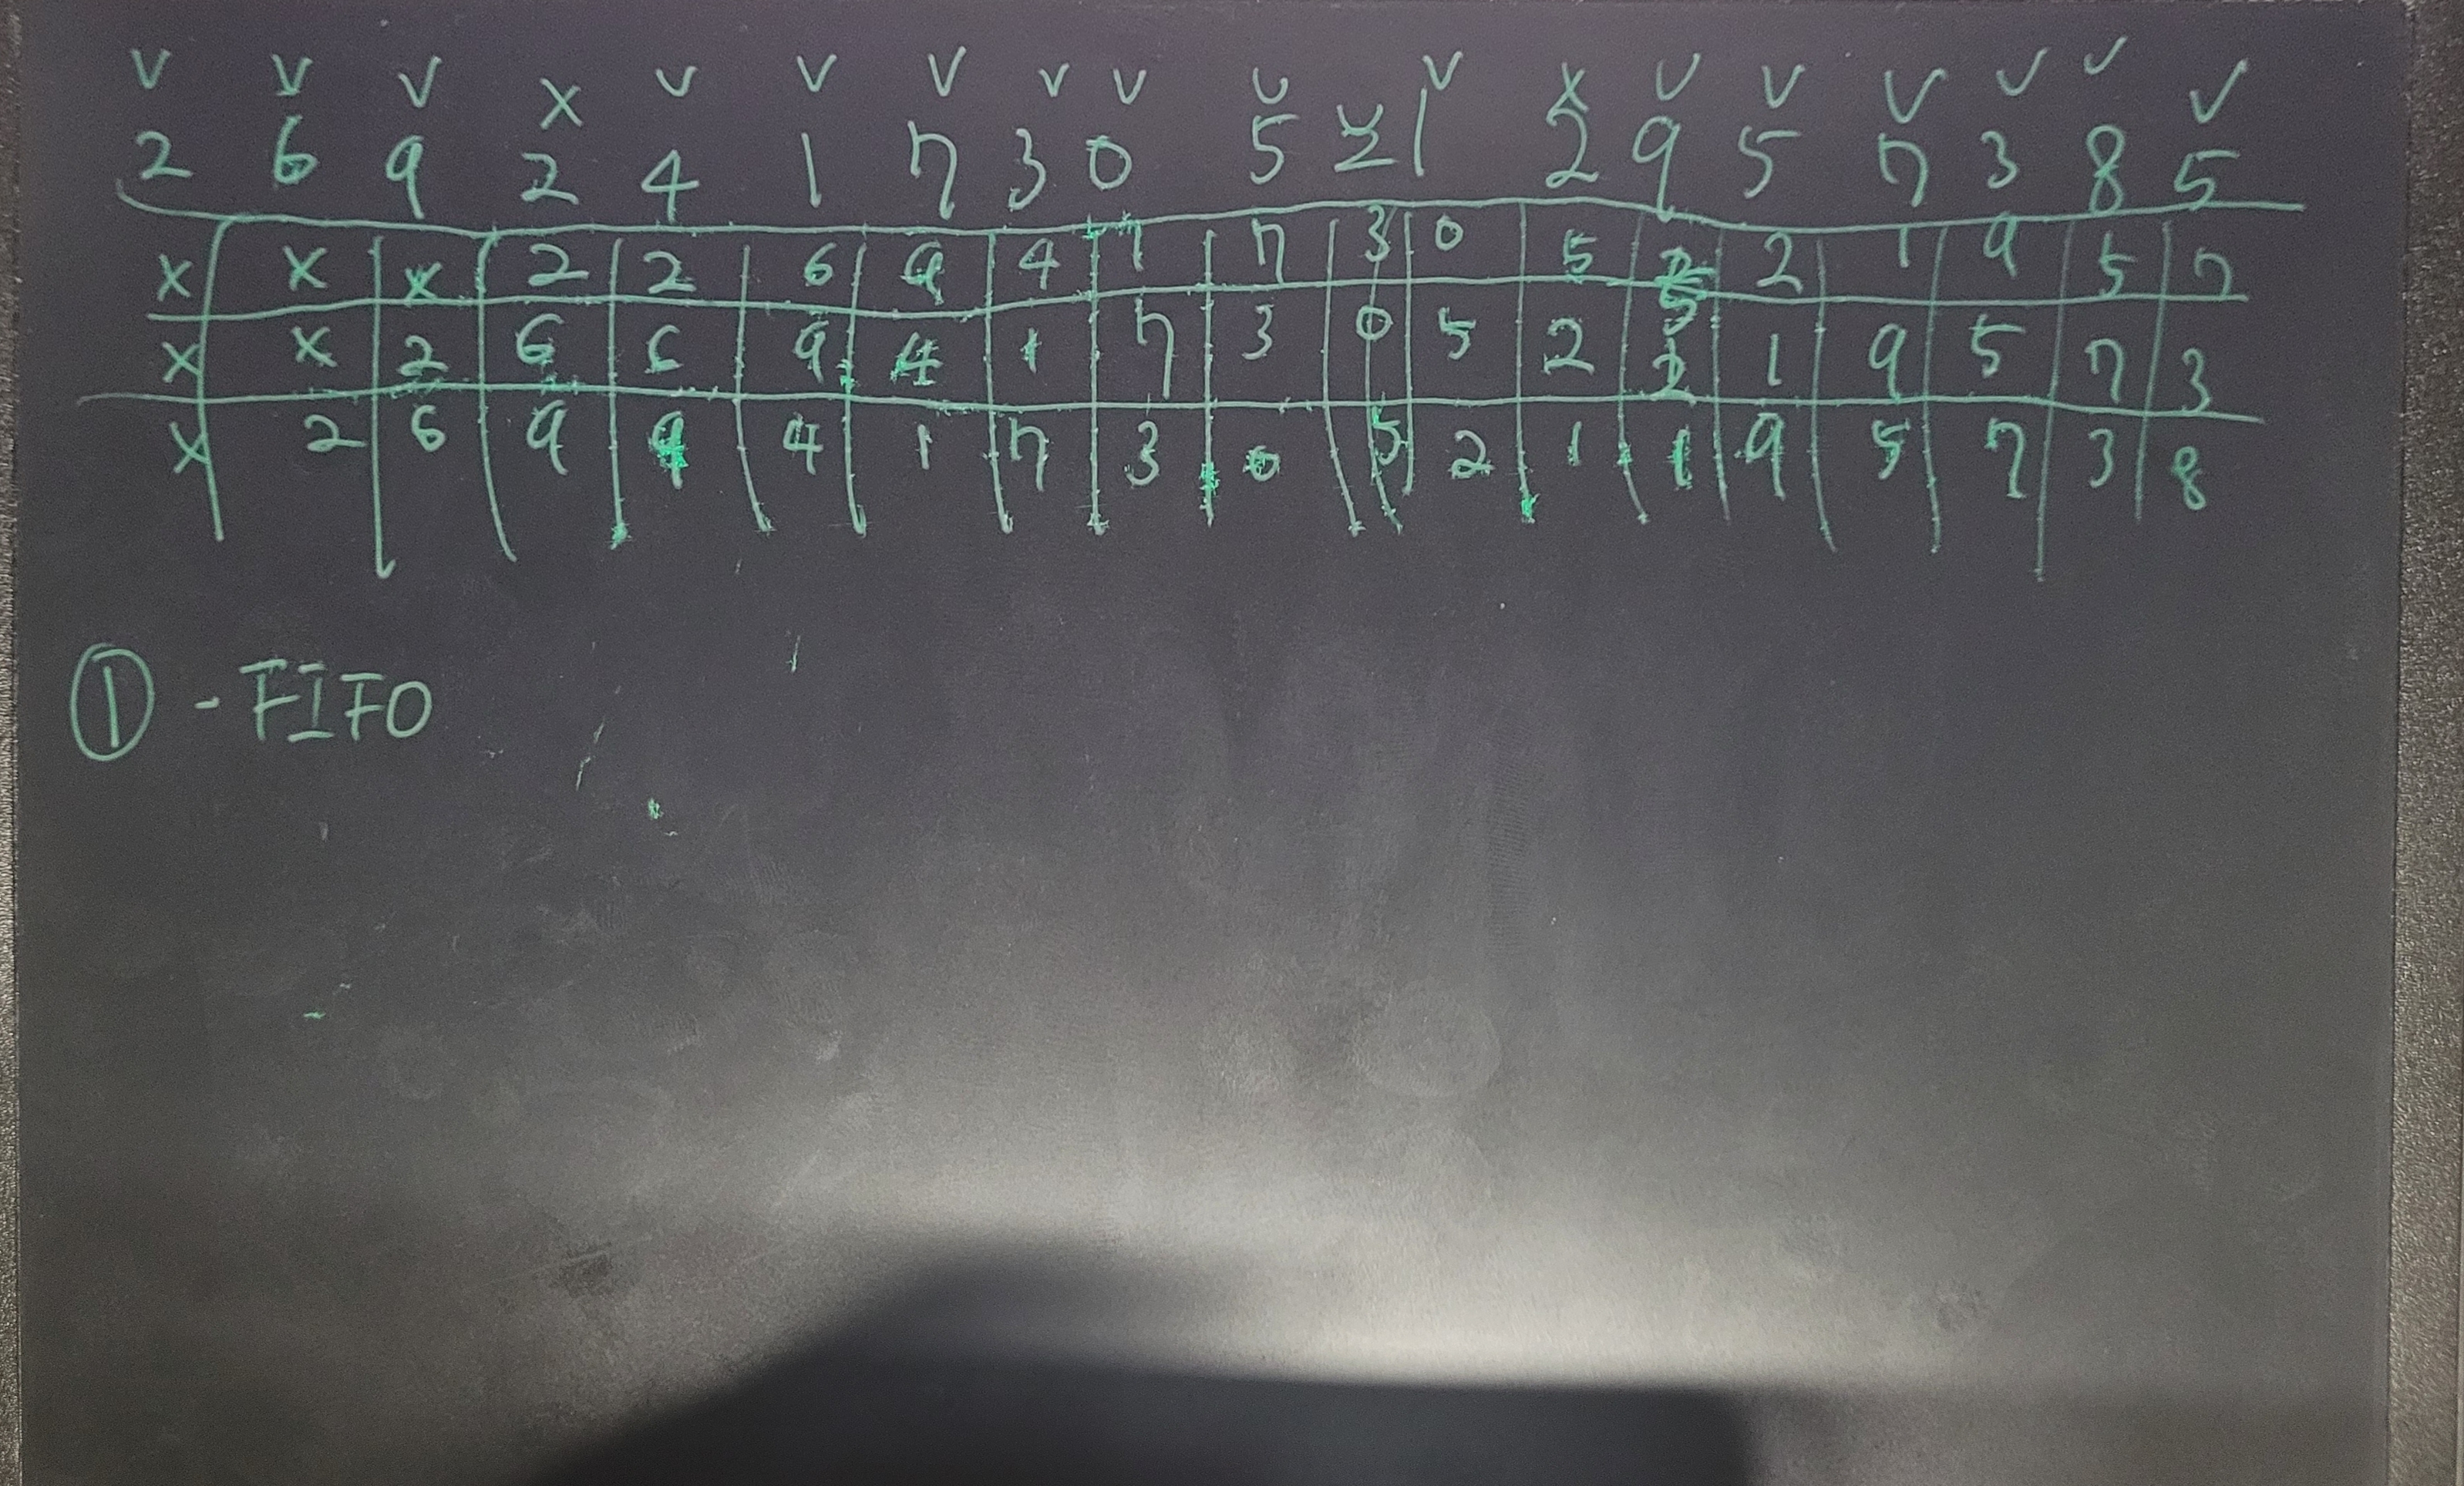 V V V X V V V V V V V V X V V V V V V
2 6 9 2 4 1 7 3 0 5 2 1 2 9 5 7 3 8 5
X X X 2 2 6 9 4 1 7 3 0 5 2 1 9 5 7
X X 2 6 6 9 4 1 7 3 0 5 2 2 1 9 5 7 3
X 2 6 9 9 4 1 7 3 0 5 2 1 1 9 5 7 3 8
① - FIFO